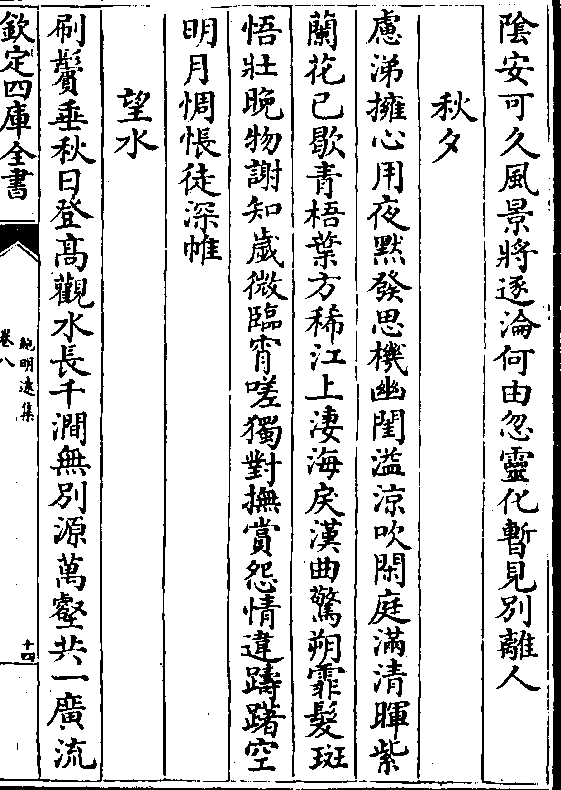 陰安可久風景將逐淪何由忽靈化暫見別離人
秋夕
慮涕擁心用夜黙發思機幽閨溢涼吹閑庭滿清暉紫
蘭花已歇青梧葉方稀江上淒海戾漢曲驚朔霏髮斑
悟壯晚物謝知歲微臨宵嗟獨對撫賞怨情違躊躇空
明月惆悵徒深帷
望水
刷鬢垂秋日登髙觀水長千澗無别源萬壑共一廣流
欽定四庫全書
鮑明遠集
卷八
十四